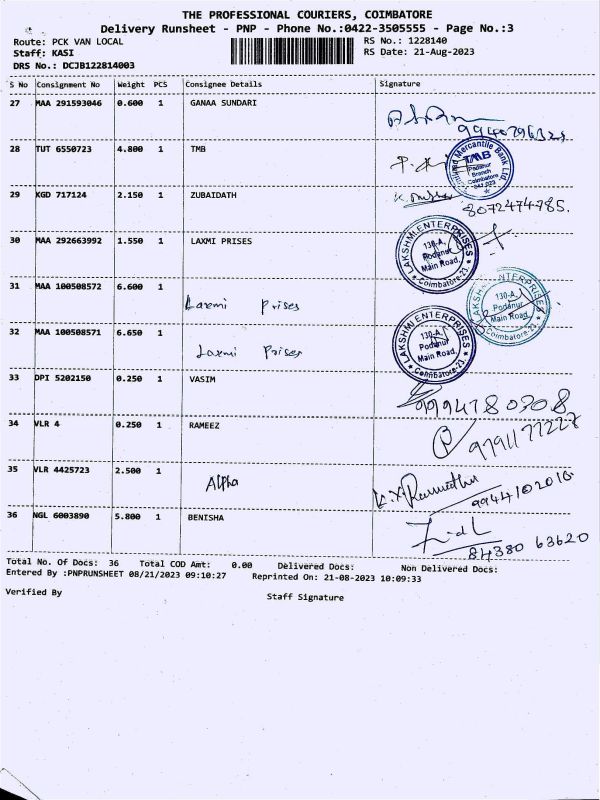 THE PROFESSIONAL COURIERS, COIMBATORE
Delivery Runsheet - PNP - Phone No.:0422-3505555 - Page No.:3
Route: PCK VAN LOCAL
RS No.: 1228140
Staff: KASI
RS Date: 21-Aug-2023
DRS No.: DCJB122814003
S No Consignment No Weight PCS Consignee Details Signature
27 MAA 291593046 0.600 1 GANAA SUNDARI
28 TUT 6550723 4.800 1 TMB
TMB
Podanur
Branch
Coimbatore
641 023
29 KGD 717124 2.150 1 ZUBAIDATH
8072474785.
30 MAA 292663992 1.550 1 LAXMI PRISES
LAKSHMI ENTERPRISES
130-A,
Podanur
Main Road,
Coimbatore-23.
31 MAA 100508572 6.600 1 Laxmi Prises
LAKSHMI ENTERPRISES
130-A,
Podanur
Main Road,
Coimbatore-23.
32 MAA 100508571 6.650 1 Laxmi Prises
LAKSHMI ENTERPRISES
130-A,
Podanur
Main Road,
Coimbatore-23.
33 DPI 5202150 0.250 1 VASIM
9994780308
34 VLR 4 0.250 1 RAMEEZ
9791177227
35 VLR 4425723 2.500 1 Alpha
9944102010
36 NGL 6003890 5.800 1 BENISHA
84380 63620
Total No. Of Docs: 36 Total COD Amt: 0.00 Delivered Docs: Non Delivered Docs:
Entered By :PNPRUNSHEET 08/21/2023 09:10:27 Reprinted On: 21-08-2023 10:09:33
Verified By
Staff Signature